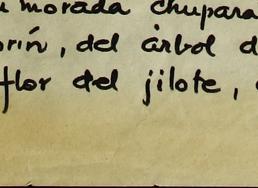 morada chupara
orín, del árbol d
flor del jilote,